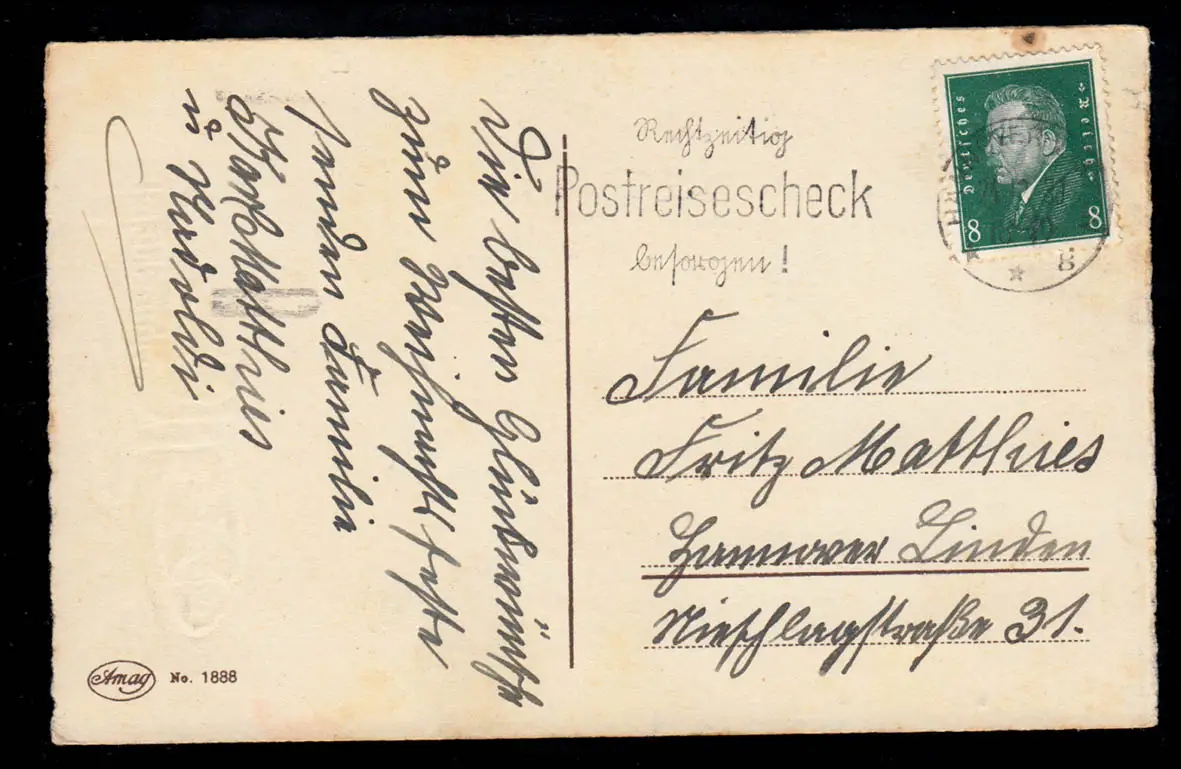 Die besten Glückwünsche
zum Weihnachtsfeste
senden Familie
Matthies
u
Rechtzeitig
Postreisescheck
besorgen!
Deutsches Reich
8 8
Familie
Fritz Matthies
Hannover Linden
Nieschlagstraße 31.
Amag No. 1888